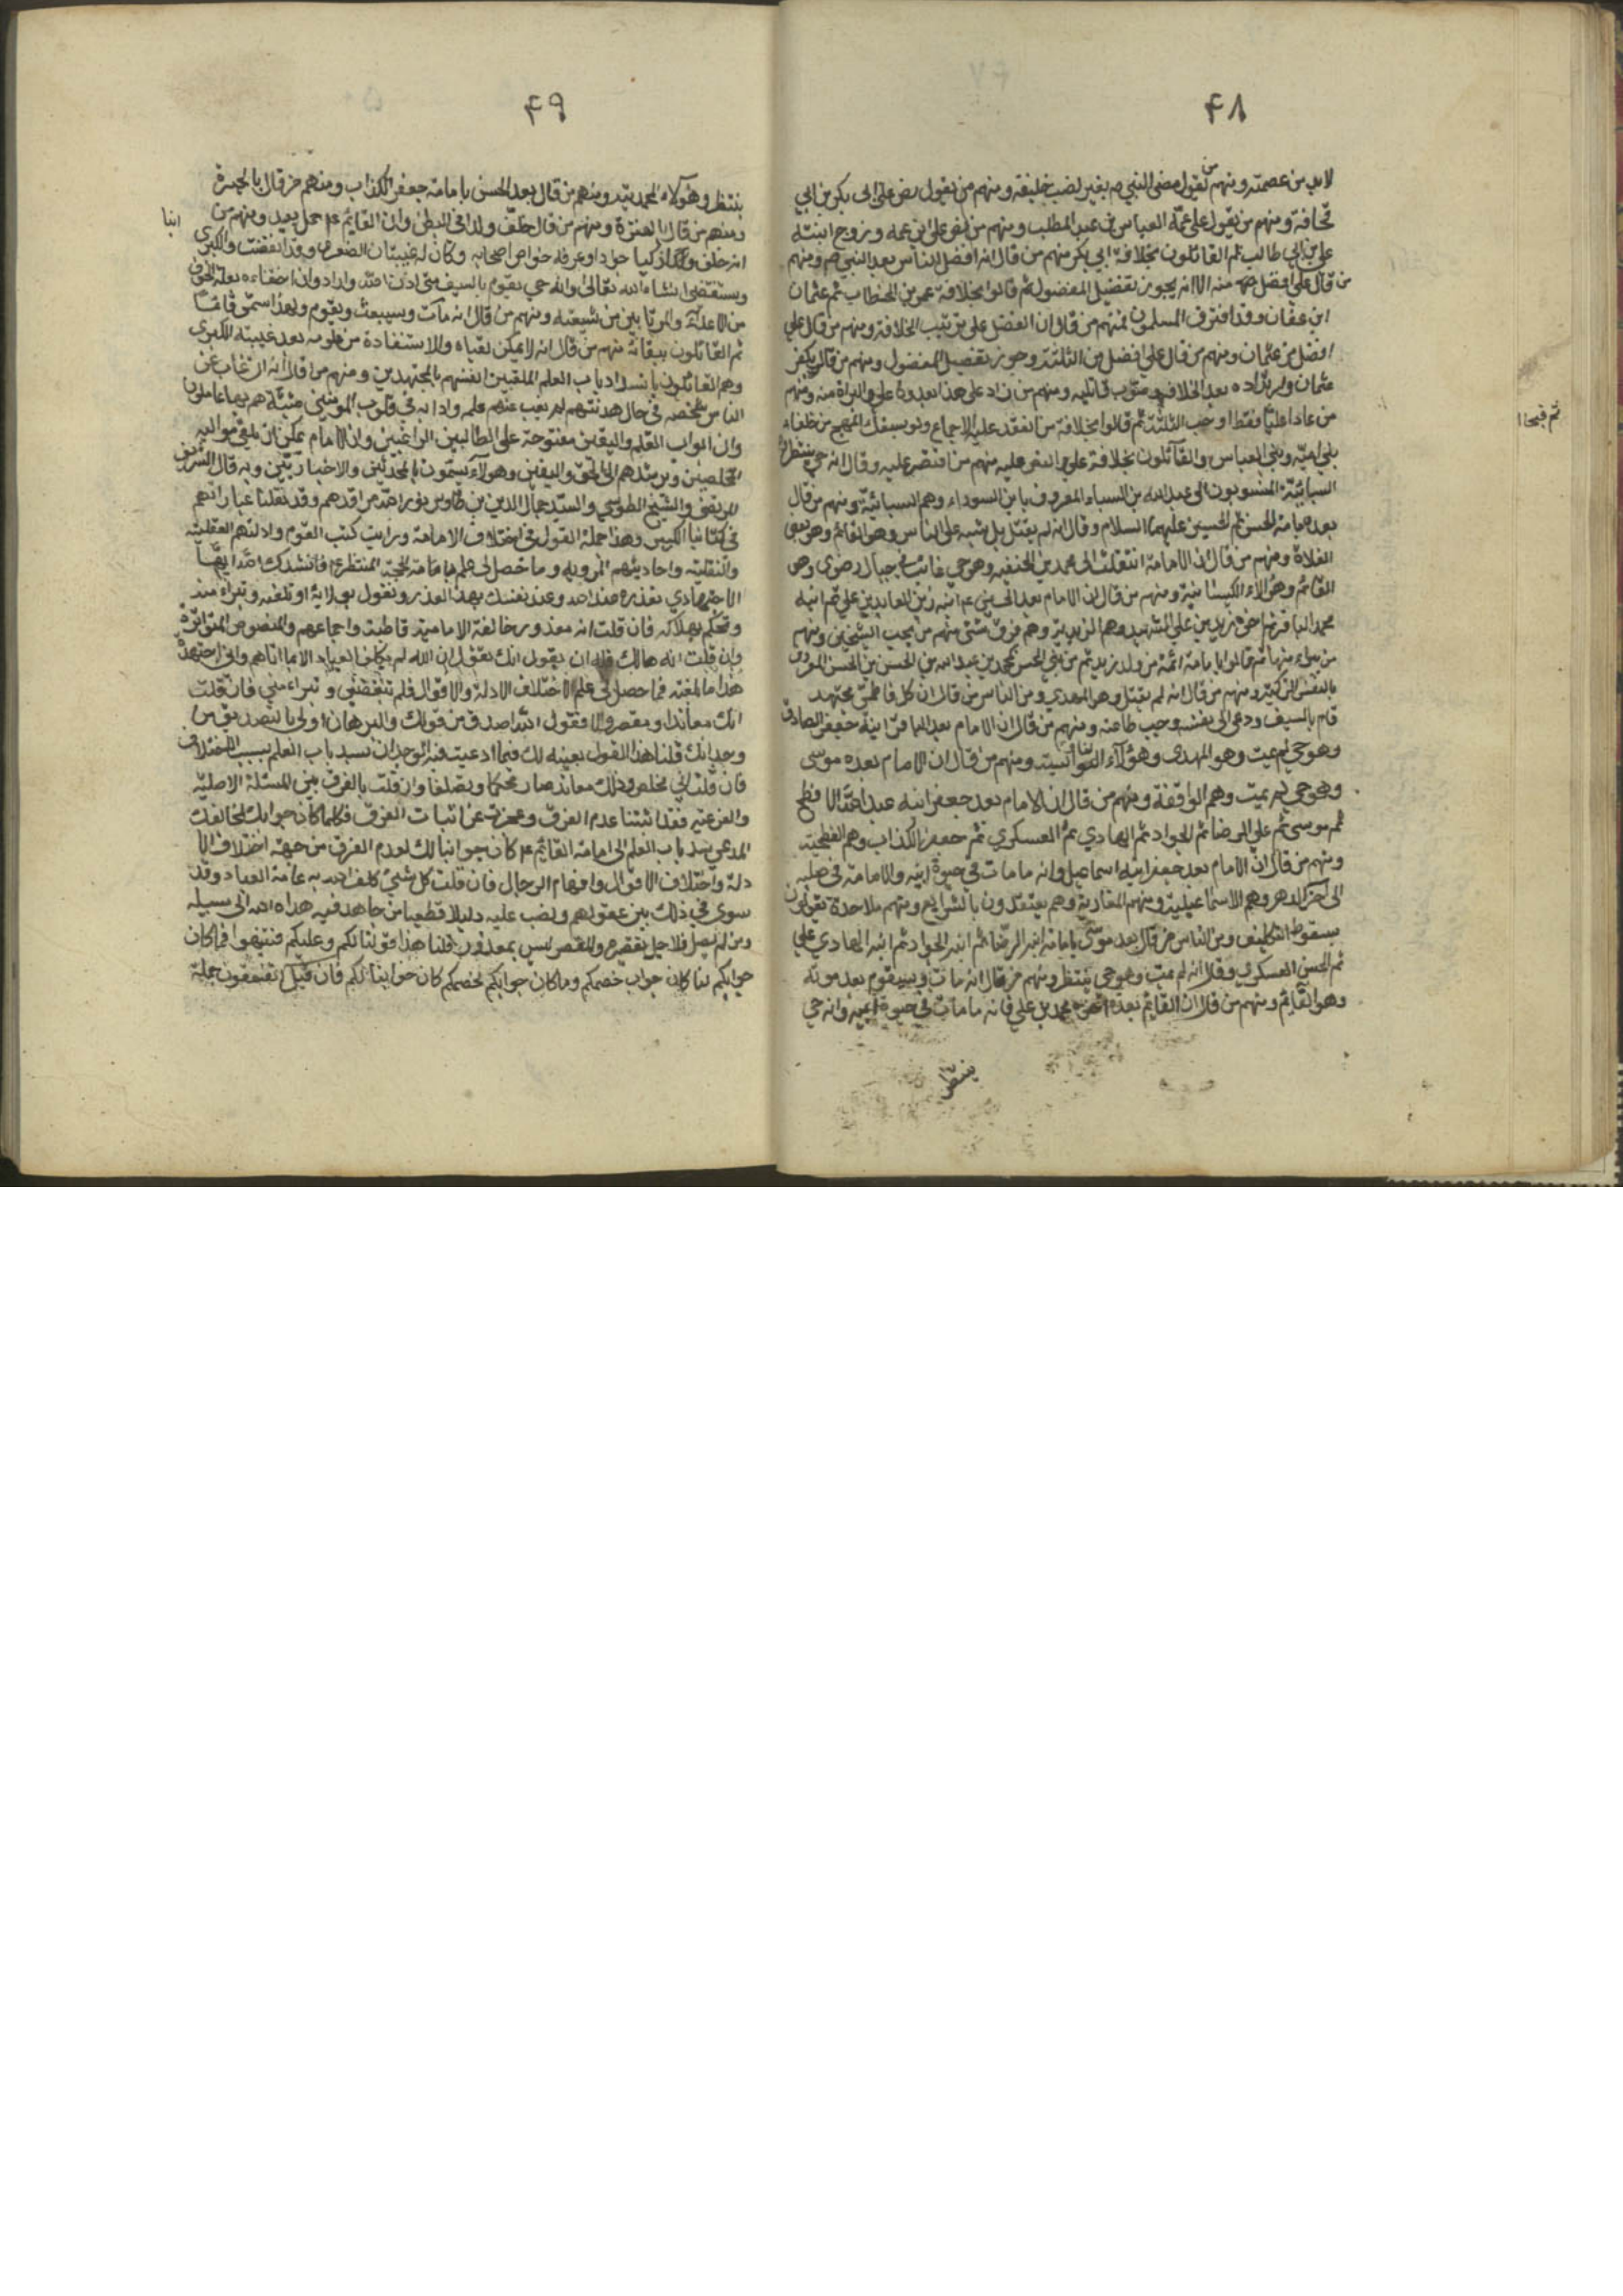 ۴۸
لابد من عصمته ومنهم من يقول مضى النبي ص بغير نصب خليفة ومنهم من يقول نص على ابى بكر بن ابي
قحافة ومنهم من يقول على عمّه العباس بن عبد المطلب ومنهم من على ابن عمه وزوج ابنته
علي بن ابي طالب ثم القائلون بخلافة ابي بكر منهم من قال انه افضل الناس بعد النبي ص ومنهم
من قال علي افضل منه الا انه يجوز تفضيل المفضول ثم قالوا بخلافة عمر بن الخطاب ثم عثمان
ابن عفان وقد افترق المسلمون فمنهم من قال ان الفضل على ترتيب الخلافة ومنهم من قال علي
افضل من عثمان ومنهم من قال علي افضل من الثلثة وجوز تفضيل المفضول ومنهم من قال بكفر
عثمان وارتداده بعد الخلافة وصوّب قاتليه ومنهم من زاد على هذا علي والبراة منه ومنهم
من عادا عليّا فقط واحب الثلثة ثم قالوا بخلافة من انعقد عليه الاجماع ولو بسيفك المهج من خلفاء
بني اميّه وبني العباس والقائلون بخلافة علي منهم من اقتصر عليه وقال انه حي ينتظر
السبائيّة المنسوبون الى عبد الله بن السباء المعروف بابن السوداء وهم السبائيّة ومنهم من قال
بعده بامامة الحسن ثم الحسين عليهما السلام وقال انه لم يقتل بل شبه على الناس وهو القائم وهو بعض
الغلاة ومنهم من قال ان الامامة انتقلت الى محمد بن الحنفيه وهو حي غائب في جبال رضوى وهو
القائم وهؤلاء الكيسانية ومنهم من قال ان الامام بعد الحسين ع ابنه زين العابدين علي ثم ابنه
محمد الباقر ثم اخوه زيد بن علي الشهيد وهم الزيدية وهم فرق شتى منهم من يحب الشيخين ومنهم
من يبراء منهما ثم قالوا بامامة ائمة من ولد زيد ثم من بني الحسن كمحمد بن عبد الله بن الحسن بن الحسن المعروف
بالنفس الزكية ومنهم من قال انه لم يقتل وهو المهدي ومن الناس من قال ان كل فاطمي مجتهد
قام بالسيف ودعى الى نفسه وجب طاعته ومنهم من قال ان الامام بعد الباقر ابنه جعفر الصادق
وهو حي لم يمت وهو المهدى وهؤلاء الناوسية ومنهم من قال ان الامام بعده موسى
وهو حي لم يمت وهم الواقفة ومنهم من قال ان الامام بعد جعفر ابنه عبد الله الافطح
ثم موسى ثم علي الرضا ثم الجواد ثم الهادي ثم العسكري ثم جعفر الكذاب وهم الفطحية
ومنهم من قال ان الامام بعد جعفر ابنه اسماعيل وانه ما مات في حيوة ابيه والامامة في صلبه
الى آخر الدهر وهم الاسماعيلية ومنهم المغاربة وهم يعتقدون بالشرايع ومنهم ملاحدة يقولون
بسقوط التكليف ومن الناس من قال بعد موسى بامامة ابنه الرضا ثم ابنه الجواد ثم ابنه الهادي علي
ثم الحسن العسكري وقال انه لم يمت وهو حي ينتظر ومنهم من قال انه مات وسيقوم بعد موته
وهو القايم ومنهم من قال ان القايم بعده اخوه محمد بن علي فانه ما مات في حيوة ابيه وانه حي
ينتظر
۴۹
ينتظر وهؤلاء المحمديّة ومنهم من قال بعد الحسن بامامة جعفر الكذاب ومنهم من قال بالحيرة
ومنهم من قال بالفترة ومنهم من قال خلّف ولدا في البطن وان القايم ع حمل بعد ومنهم من
ابنا
انه خلف ولدا زكيا جوادا وعرفه خواص اصحابه وكان له غيبتان الصغرى وقد انقضت والكبرى
وستنقضى انشاء الله تعالى وانه حي يقوم بالسيف متى اذن الله واراد وان اخفاءه بعلة الخوف
من الاعداء والمرتابين من شيعته ومنهم من قال انه مات وسيبعث ويقوم ولهذا سمّى قائما
ثم القائلون ببقائه منهم من قال انه لا يمكن لقياه والاستفادة من علومه بعد غيبته الكبرى
وهم القائلون بانسداد باب العلم الملقبين انفسهم بالمجتهدين ومنهم من قال انه ان غاب عن
الناس شخصه في حال هدنتهم لم يغب عنهم علمه وادابه في قلوب المؤمنين مثبتة هم بها عاملون
وان ابواب العلم واليقين مفتوحة على الطالبين الراغبين وان الامام يمكن ان يلقى مواليه
المخلصين ويرشدهم الى الحق واليقين وهؤلاء يسمون بالمحدثين والاخباريّين وبه قال الشريف
المرتضى والشيخ الطوسي والسيّد جمال الدين بن طاوس نوّر الله مراقدهم وقد نقلنا عباراتهم
في كتابنا الكبير وهذا جملة القول في اختلاف الامامة ورايت كتب القوم وادلتهم العقلية
والنقلية واحاديثهم المروية وما حصل لى علم بامامة الحجة المنتظر ع فانشدك الله ايها
الاجتهادي تعذره عند الله وعند نفسك بهذا العذر وتقول بولاية او تلعنه وتبراء منه
وتحكم بهلاكه فان قلت انه معذور خالفة الامامية قاطبة واجماعهم والنصوص المتواترة
وان قلت انه هالك فله ان يقول انك تقول ان الله لم يكلف العباد الا ما اتاهم وانى اجتهدت
هذا ما بلغته فما حصل لى علم لاختلاف الادلة والاقوال فلم تبغضني وتبراء مني فان قلت
انك معاندا ومقصر والا فقول الله اصدق من قولك والبرهان اولى بالتصديق من
وجدانك قلنا هذا القول بعينه لك فيما ادعيت فيه الوجدان بسد باب العلم بسبب الاختلاف
فان قلت اني مخلص وذلك معاند صار تحكما وتصلفا وان قلت بالفرق بين المسئلة الاصلية
والفرعية فقد اثبتنا عدم الفرق وعجزت عن اثبات الفرق فكلما كان جوابك لمخالفك
المدعى سد باب العلم الى امامة القائم ع كان جوابنا لك لعدم الفرق من جهة اختلاف الا
دلة واختلاف الاقوال وافهام الرجال فان قلت كل شيئ كلف الله به عامة العباد وقد
سوى في ذلك بين عقولهم ونصب عليه دليلا قطعيا من جاهد فيه هداه الله الى سبيله
ومن لم يصل فلاجل تقصيره والمقصر ليس بمعذور قلنا هذا قولنا لكم وعليكم فتنبهوا فما كان
جوابكم لنا كان جواب خصمكم وما كان جوابكم لخصمكم كان جوابنا لكم فان قيل